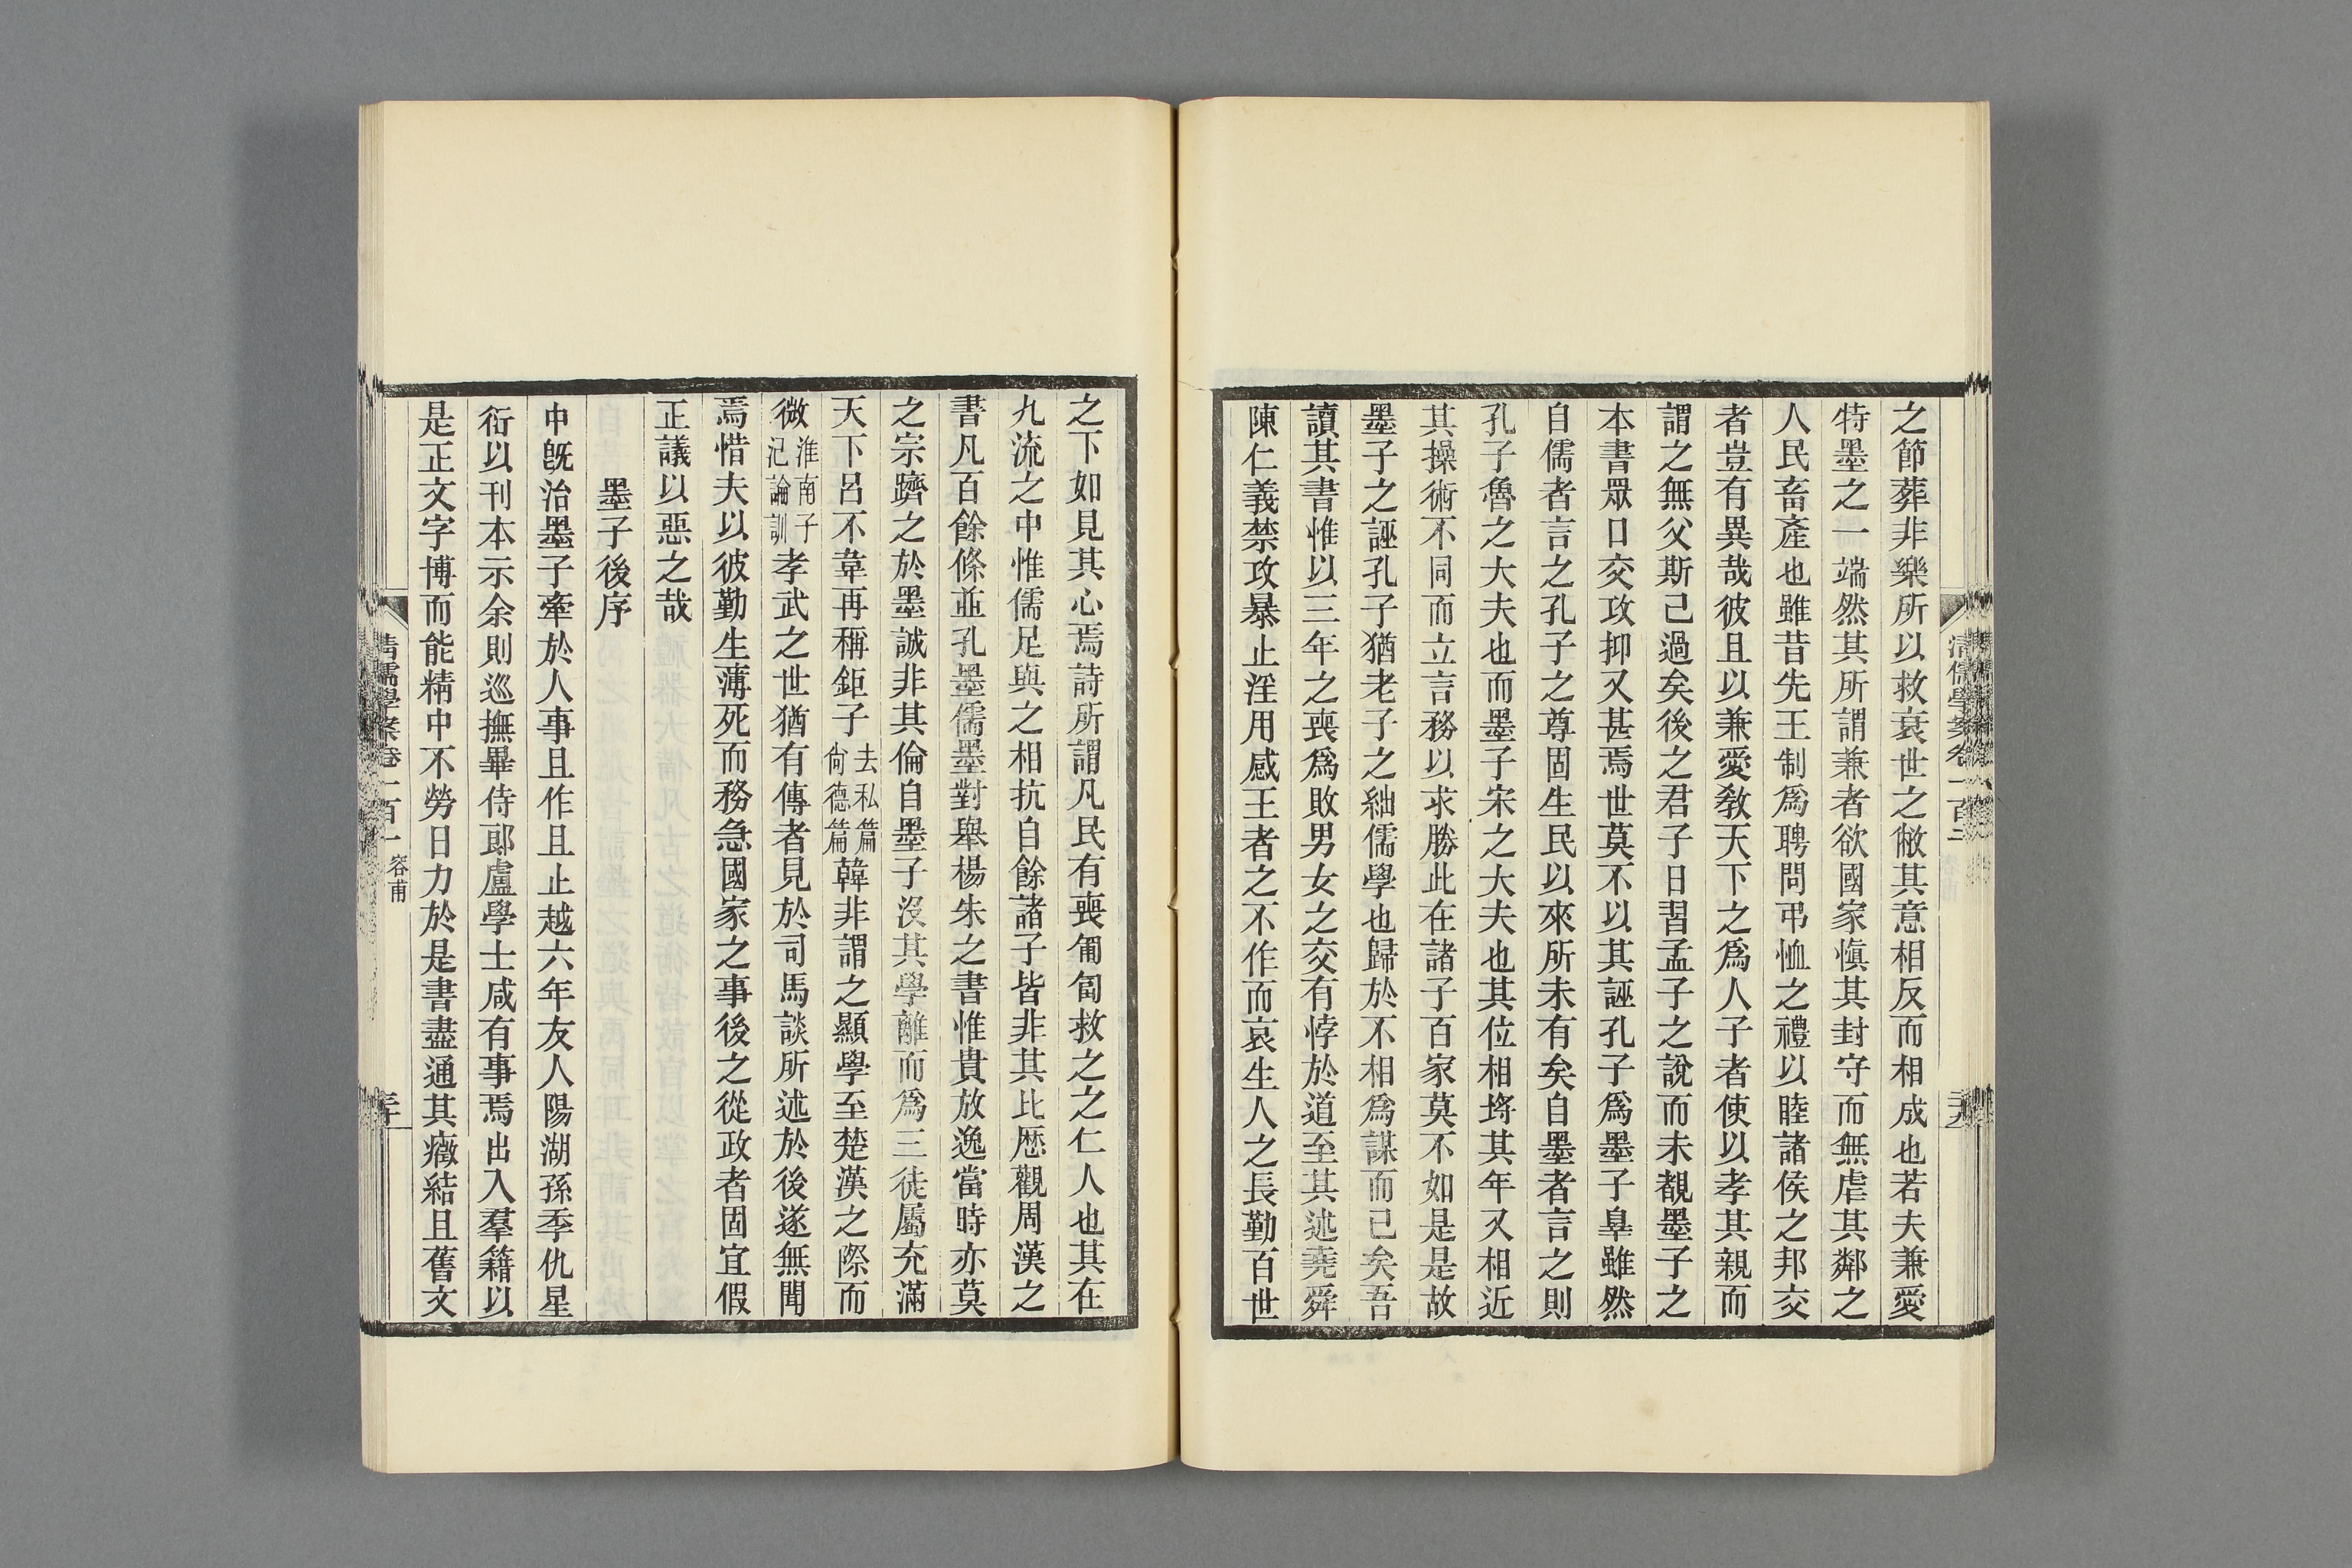 之節葬非樂所以救衰世之敝其意相反而相成也若夫兼愛
特墨之一端然其所謂兼者欲國家愼其封守而無虐其鄰之
人民畜產也雖昔先王制爲聘問弔恤之禮以睦諸侯之邦交
者豈有異哉彼且以兼愛敎天下之爲人子者使以孝其親而
謂之無父斯已過矣後之君子日習孟子之說而未覩墨子之
本書眾口交攻抑又甚焉世莫不以其誣孔子爲墨子辠雖然
自儒者言之孔子之尊固生民以來所未有矣自墨者言之則
孔子魯之大夫也而墨子宋之大夫也其位相埒其年又相近
其操術不同而立言務以求勝此在諸子百家莫不如是是故
墨子之誣孔子猶老子之絀儒學也歸於不相爲謀而已矣吾
讀其書惟以三年之喪爲敗男女之交有悖於道至其述堯舜
陳仁義禁攻暴止淫用感王者之不作而哀生人之長勤百世
之下如見其心焉詩所謂凡民有喪匍匐救之之仁人也其在
九流之中惟儒足與之相抗自餘諸子皆非其比歷觀周漢之
書凡百餘條並孔墨儒墨對舉楊朱之書惟貴放逸當時亦莫
之宗躋之於墨誠非其倫自墨子沒其學離而爲三徒屬充滿
天下呂不韋再稱鉅子去私篇尙德篇韓非謂之顯學至楚漢之際而
微淮南子氾論訓孝武之世猶有傳者見於司馬談所述於後遂無聞
焉惜夫以彼勤生薄死而務急國家之事後之從政者固宜假
正議以惡之哉
墨子後序
中旣治墨子牽於人事且作且止越六年友人陽湖孫季仇星
衍以刊本示余則巡撫畢侍郎盧學士咸有事焉出入羣籍以
是正文字博而能精中不勞日力於是書盡通其癥結且舊文
清儒學案卷一百二
容甫